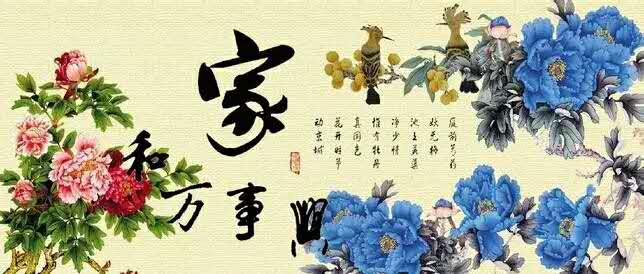 家
和
万
事
興
庭前芍药
妖无格
池上芙蕖
净少情
惟有牡丹
真国色
花开时节
动京城